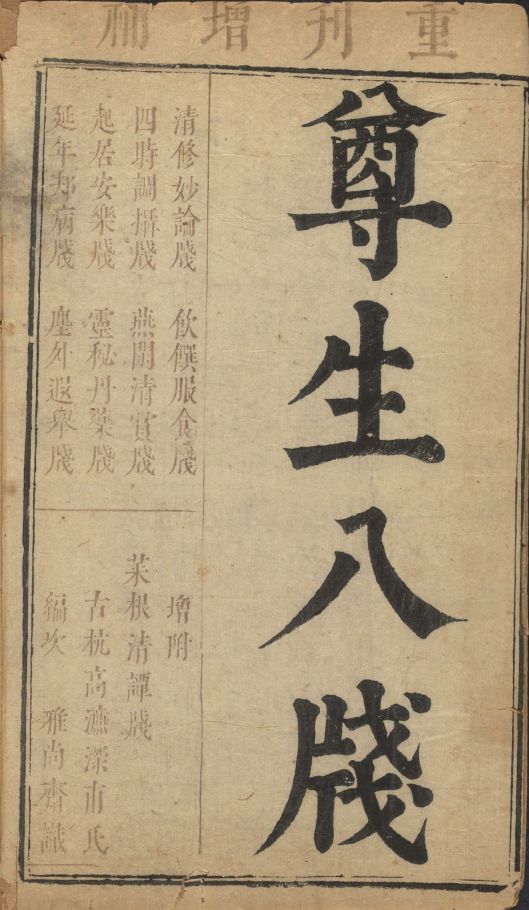 重刊增補
尊生八牋
清修妙論牋 飲饌服食牋
四時調攝牋 燕閒清賞牋
起居安樂牋 靈秘丹藥牋
延年却病牋 塵外遐舉牋
增附
菜根清譚牋
古杭高濂深甫氏
編次 雅尚齋識